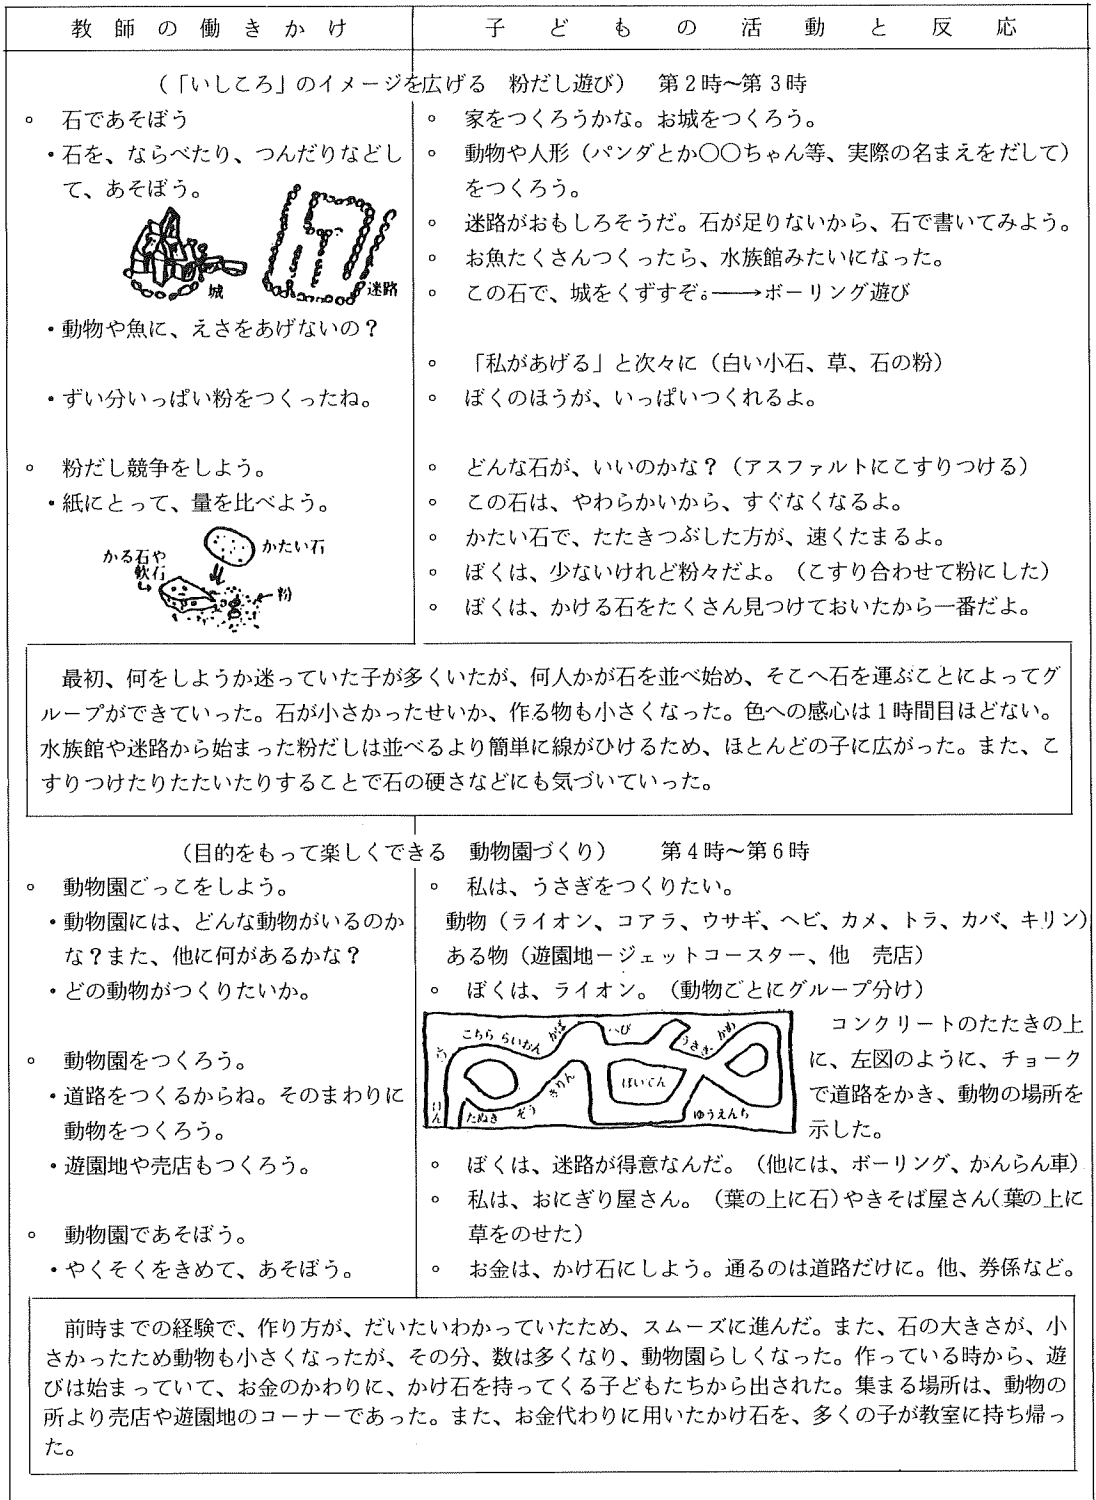 教師の働きかけ
子どもの活動と反応
(「いしころ」のイメージを広げる　粉だし遊び)　第2時～第3時
。　石であそぼう
・石を、ならべたり、つんだりなどし
て、あそぼう。
城
迷路
・動物や魚に、えさをあげないの？
・ずい分いっぱい粉をつくったね。
。　粉だし競争をしよう。
・紙にとって、量を比べよう。
かたい石
かる石や
軟石
粉
。　家をつくろうかな。お城をつくろう。
。　動物や人形（パンダとか〇〇ちゃん等、実際の名まえをだして）
をつくろう。
。　迷路がおもしろそうだ。石が足りないから、石で書いてみよう。
。　お魚たくさんつくったら、水族館みたいになった。
。　この石で、城をくずすぞ。──→ボーリング遊び
。　「私があげる」と次々に（白い小石、草、石の粉）
。　ぼくのほうが、いっぱいつくれるよ。
。　どんな石が、いいのかな？（アスファルトにこすりつける）
。　この石は、やわらかいから、すぐなくなるよ。
。　かたい石で、たたきつぶした方が、速くたまるよ。
。　ぼくは、少ないけれど粉々だよ。（こすり合わせて粉にした）
。　ぼくは、かける石をたくさん見つけておいたから一番だよ。
最初、何をしようか迷っていた子が多くいたが、何人かが石を並べ始め、そこへ石を運ぶことによってグ
ループができていった。石が小さかったせいか、作る物も小さくなった。色への感心は１時間目ほどない。
水族館や迷路から始まった粉だしは並べるより簡単に線がひけるため、ほとんどの子に広がった。また、こ
すりつけたりたたいたりすることで石の硬さなどにも気づいていった。
（目的をもって楽しくできる　動物園づくり）　第4時～第6時
。　動物園ごっこをしよう。
・動物園には、どんな動物がいるのか
な？また、他に何があるかな？
・どの動物がつくりたいか。
。　動物園をつくろう。
・道路をつくるからね。そのまわりに
動物をつくろう。
・遊園地や売店もつくろう。
。　動物園であそぼう。
・やくそくをきめて、あそぼう。
。　私は、うさぎをつくりたい。
動物（ライオン、コアラ、ウサギ、ヘビ、カメ、トラ、カバ、キリン）
ある物（遊園地－ジェットコースター、他　売店）
。　ぼくは、ライオン。（動物ごとにグループ分け）
こちら　らいおん　かば　へび　うさぎ　かめ
きりん
ばいてん
たぬき　ぞう
ゆうえんち
コンクリートのたたきの上
に、左図のように、チョーク
で道路をかき、動物の場所を
示した。
。　ぼくは、迷路が得意なんだ。（他には、ボーリング、かんらん車）
。　私は、おにぎり屋さん。（葉の上に石）やきそば屋さん（葉の上に
草をのせた）
。　お金は、かけ石にしよう。通るのは道路だけに。他、券係など。
前時までの経験で、作り方が、だいたいわかっていたため、スムーズに進んだ。また、石の大きさが、小
さかったため動物も小さくなったが、その分、数は多くなり、動物園らしくなった。作っている時から、遊
びは始まっていて、お金のかわりに、かけ石を持ってくる子どもたちから出された。集まる場所は、動物の
所より売店や遊園地のコーナーであった。また、お金代わりに用いたかけ石を、多くの子が教室に持ち帰っ
た。